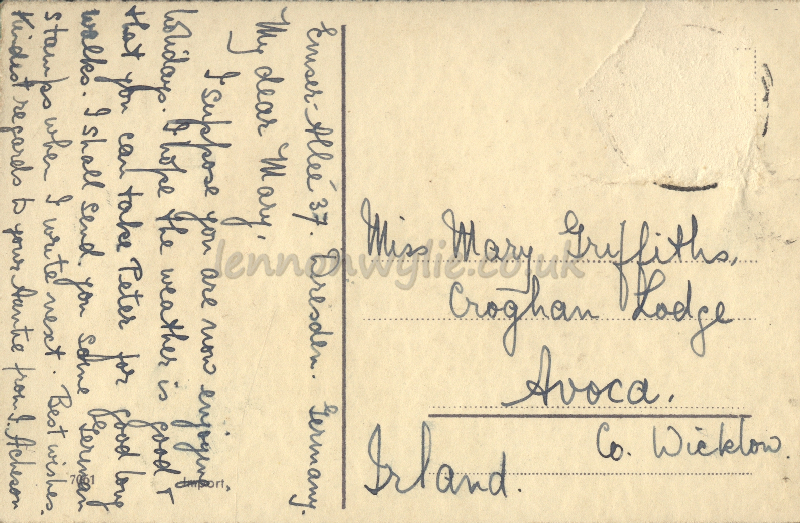 Emser-Allee 37. Dresden. Germany.
My dear Mary,
I suppose you are now enjoying
holidays. I hope the weather is good &
that you can take Peter for good long
walks. I shall send you some German
stamps when I write next. Best wishes.
Kindest regards to your Auntie from I. Acheson
7061 Import.
Miss Mary Griffiths,
Croghan Lodge
Avoca.
Co. Wicklow.
Irland.
lennonwylie.co.uk